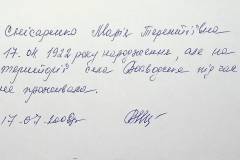 Снісаренко Марія Терентіївна
17.04.1922 року народження, але на
території села Воєводське під час
не проживала.
17.07.2008р